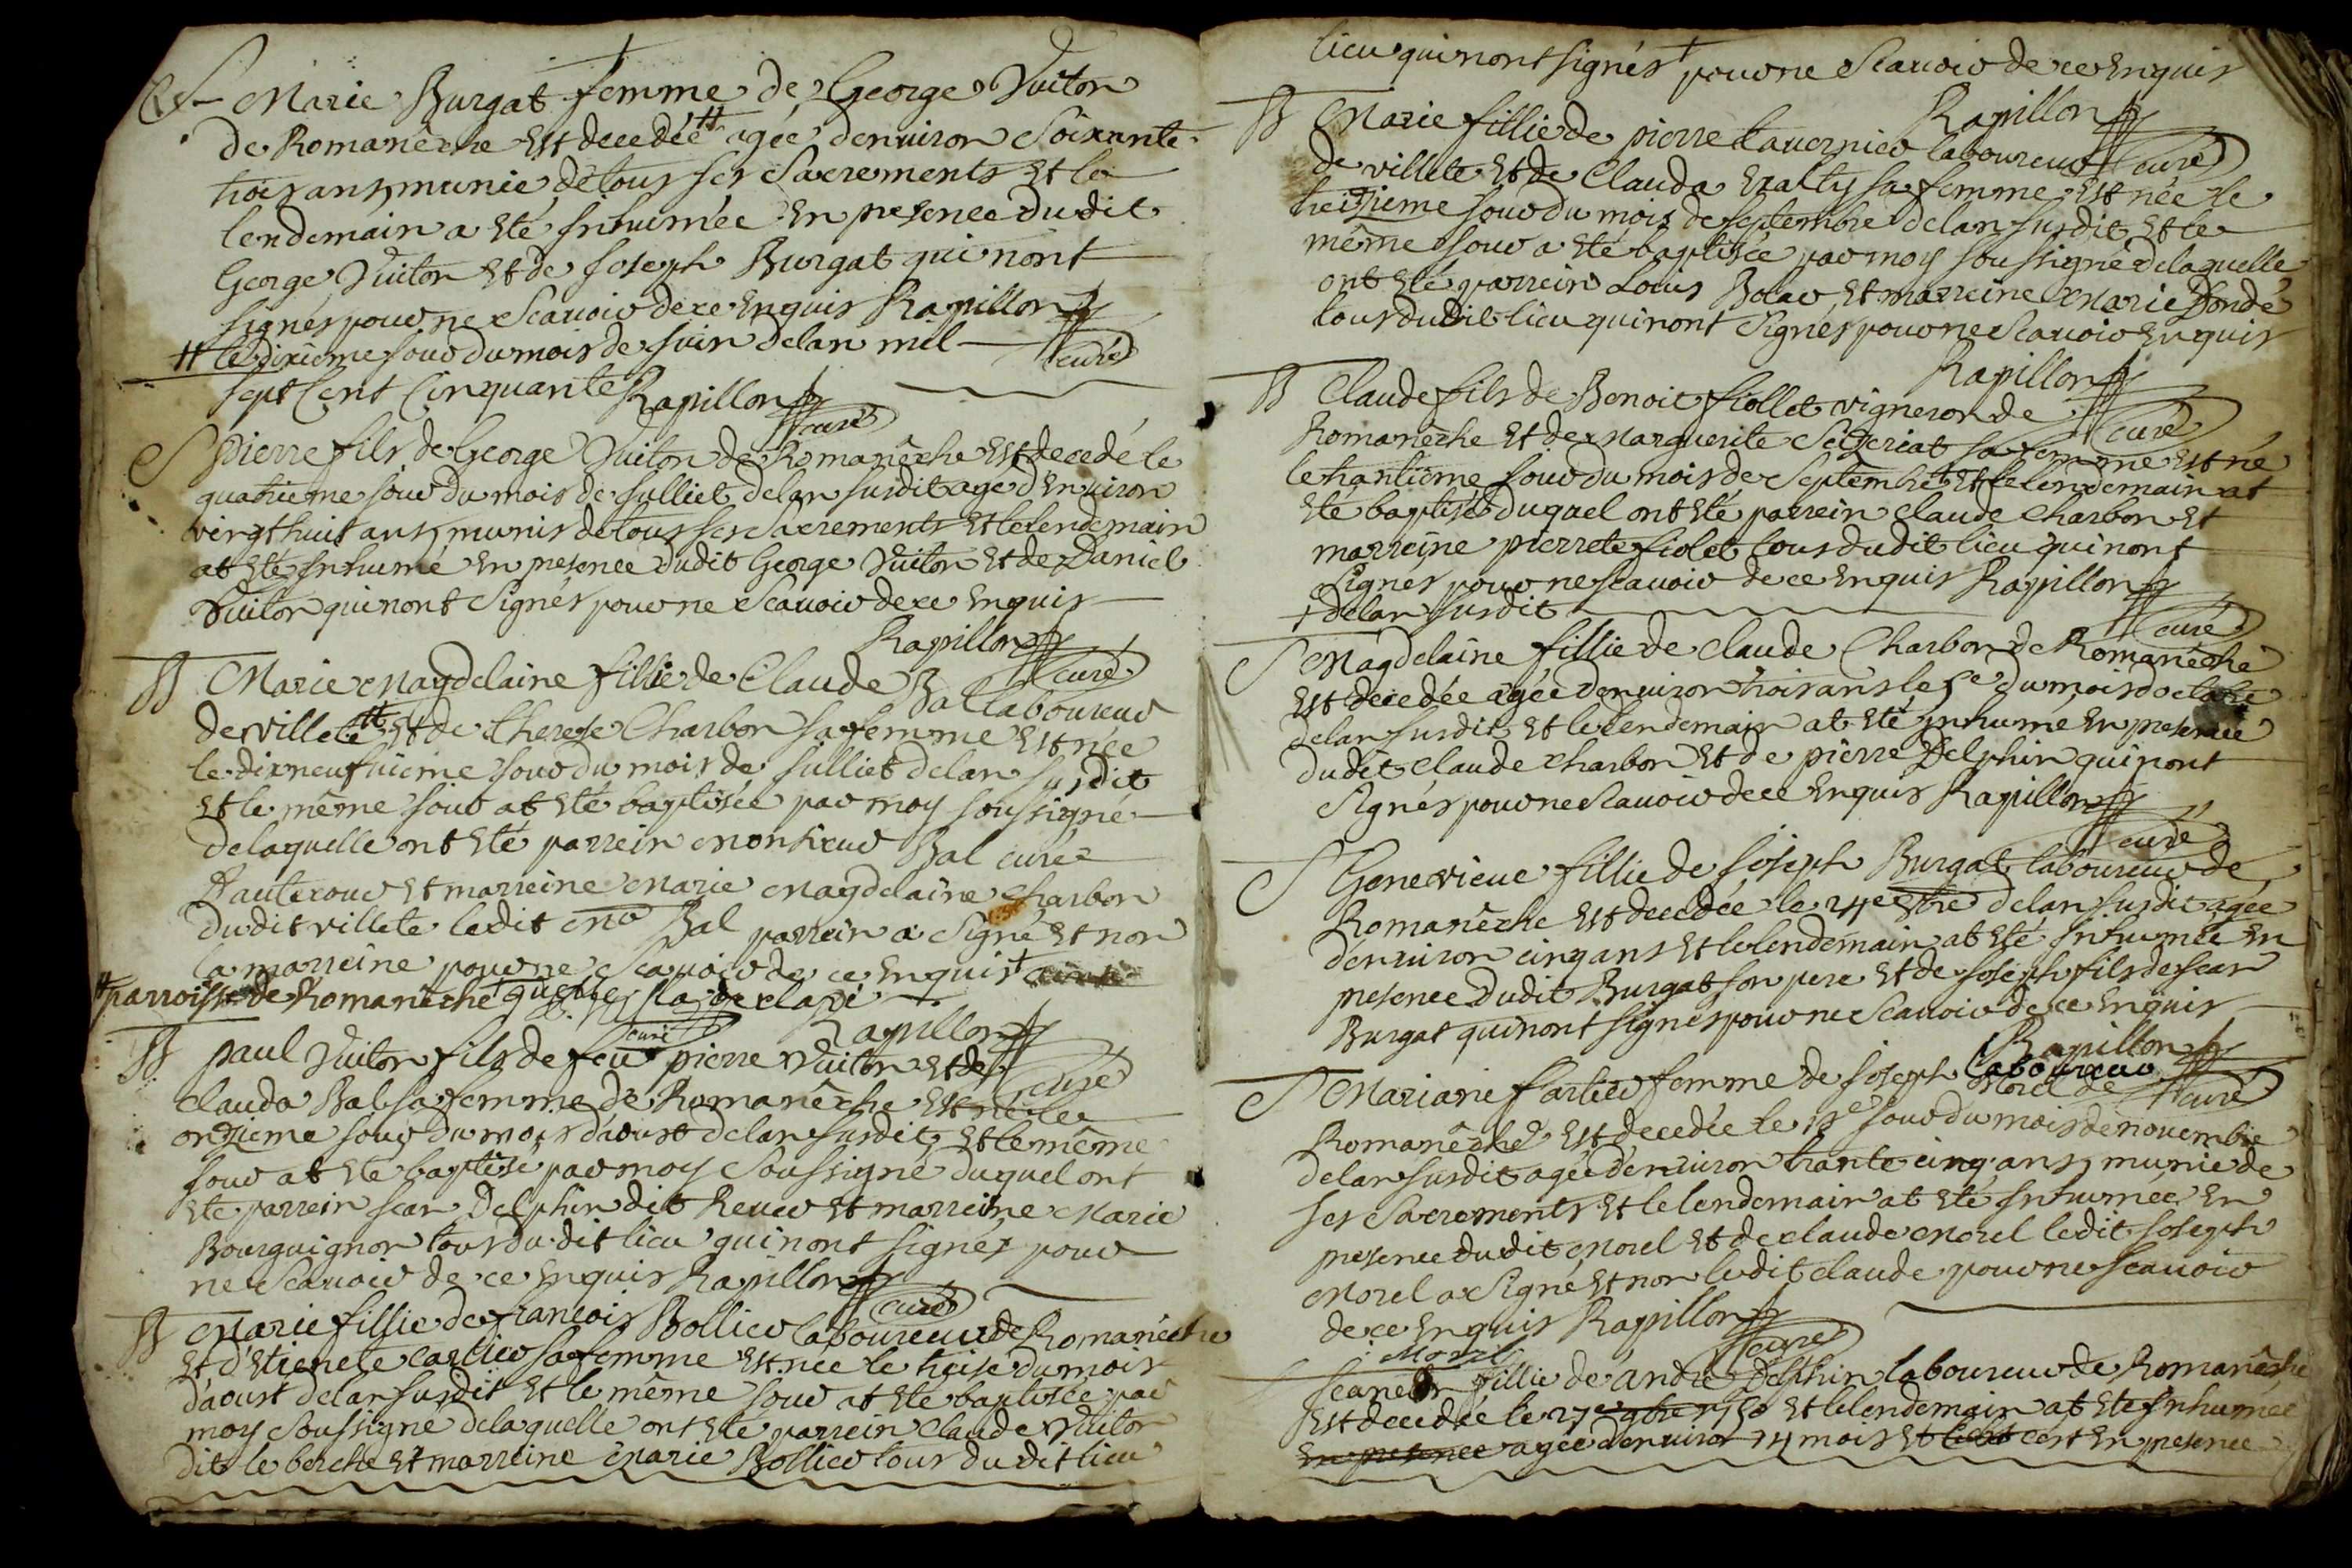 S Marie Burgat femme de George Vuiton
de Romanêche est decedée # agée denuiron Soixante
trois ans, munie de tous ses Sacrements et le
lendemain a eté inhumée en presence du dit
George Vuiton et de Joseph Burgat qui nont
signés pour ne Scauoir de ce enquis Rapillon
# le dixieme jour du mois de juin de lan mil curé
sept Cent Cinquante Rapillon
curé
S pierre fils de George Vuiton de Romanêche est decedé le
quatrieme jour du mois de julliet de lan susdit agé d'enuiron
vingt huit ans, munis de tous ses Sacrements et le lendemain
at eté inhumé en presence dudit George Vuiton et de Daniel
Vuiton qui nont Signés pour ne Scauoir de ce enquis
Rapillon
curé
B Marie Magdelaine fillie de Claude Bal laboureur
de villete # et de therese Charbon sa femme est née
le dixneufuieme jour du mois de julliet de lan susdit
et le même jour at eté baptisée par moy soussigné
de laquelle ont eté parrein monsieur Bal curé
d'auterour et marreine Marie Magdelaine Charbon
dudit villete ledit mr Bal parrein a Signé et non
la marreine pour ne Scauoir de ce enquis +
# parroisse de Romanêche
Rapillon
curé
B paul Vuiton fils de feu pierre Vuiton et de
Clauda Bal sa femme de Romanêche est né le
onzieme jour du mois d'aoust de lan susdit et le même
jour at eté baptisé par moy Soussigné duquel ont
ete parrein jean Delphin dit Reuer et marreine Marie
Bourguignon tous du dit lieu qui nont signés pour
ne Scauoir de ce enquis Rapillon
curé
B Marie fillie de francois Bollier laboureur de Romanêche
et d'Etienete Carlier sa femme est née le treise du mois
d'aoust de lan susdit et le même jour at eté baptisée par
moy Soussigné de laquelle ont eté parrein Claude Vuiton
dit le berche et marreine Marie Bollier tous du dit lieu
lieu qui nont signés + pour ne Scauoir de ce enquis
Rapillon
curé
B Marie fillie de pierre tauernier laboureur
de villete et de Clauda sa femme est née le
treizieme jour du mois de septembre de lan susdit et le
même jour a eté baptisée par moy soussigné de laquelle
ont eté parrein Louis et marreine Marie
tous du dit lieu qui nont Signés pour ne Scauoir enquis
Rapillon
curé
B Claude fils de Benoit fiollet vigneron de
Romanêche et de Marguerite Seizeriat sa femme est né
le trantieme jour du mois de Septembre + et le lendemain at
eté baptisé duquel ont eté parrein Claude Charbon et
marreine pierrete fiolet tous du dit lieu qui nont
Signes pour ne scauoir de ce enquis Rapillon
+ de lan susdit
curé
S Magdelaine fillie de Claude Charbon de Romanêche
est decedée agée denuiron trois ans le 5e du mois doctobre
de lan susdit et le lendemain at eté inhume en presence
dudit Claude Charbon et de pierre Delphin qui nont
Signés pour ne Scauoir de ce enquis Rapillon
curé
S Genevieue fillie de Joseph Burgat laboureur de
Romanêche est decedée le 24e de lan susdit agée
d'enuiron cinq ans et le lendemain at eté inhumée en
presence dudit Burgat son pere et de Joseph fils de jean
Burgat qui nont signés pour ne Scauoir de ce enquis
Rapillon
curé
S Mariane fartier femme de Joseph Morel laboureur de
Romanêche est decedée le jour du mois de nouembre
de lan susdit agée d'enuiron trante cinq ans, munie de
ses Sacrements et le lendemain at eté inhumée en
presence dudit Morel et de claude Morel ledit Joseph
Morel a Signé et non ledit Claude pour ne scauoir
de ce enquis Rapillon
Morel curé
fillie de andré Delphin laboureur de Romanêche
est decedée le 27e 9bre 1750 et le lendemain at eté inhumée
en presence agée denuiron 14 mois cest en presence